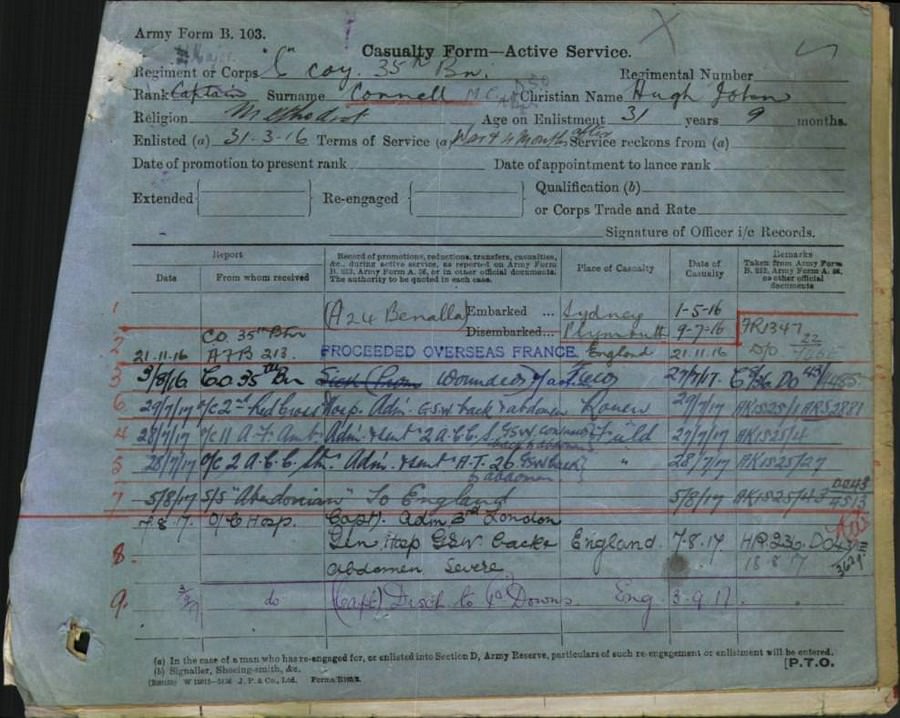 Army Form B. 103.
Casualty Form—Active Service.
Major
Regiment or Corps "C" Coy. 35th Bn. Regimental Number
Rank Captain Surname Connell M.C. Christian Name Hugh John
Religion Methodist Age on Enlistment 31 years 9 months.
Enlisted (a) 31-3-16 Terms of Service (a) War & 4 Months after Service reckons from (a)
Date of promotion to present rank Date of appointment to lance rank
Extended Re-engaged Qualification (b)
or Corps Trade and Rate
Signature of Officer i/c Records.
Report
Date From whom received
Record of promotions, reductions, transfers, casualties, &c., during active service, as reported on Army Form B. 213, Army Form A. 36, or in other official documents. The authority to be quoted in each case.
Place of Casualty
Date of Casualty
Remarks
Taken from Army Form B. 213, Army Form A. 36, or other official documents
1 (A24 Benalla) Embarked ... Sydney 1-5-16
Disembarked... Plymouth 9-7-16 FR1347
2 21.11.16 CO. 35th Bn AFB 213. PROCEEDED OVERSEAS FRANCE. England 21.11.16 D/O 22
3 3/8/16 C.O. 35th Bn Sick (from Wounded) 27/7/17. DO 43
6 29/7/17 O/C 2nd Red Cross Hosp. Adm. GSW back & abdomen Rouen 29/7/17
4 28/7/17 O/C 11 A.F. Amb. Adm & sent 2 A.C.C.S. GSW Field 27/7/17 AK1525/4
back & abdomen
5 28/7/17 O/C 2 A.C.C. Stn. Adm. & sent A.T. 26 GSW back " 28/7/17 AK1525/27
& abdomen
7 5/8/17 S/S "Aberdonian" To England 5/8/17 AK1525/43 DO43
4513
7.8.17. O/C Hosp. (Capt). Adm 3rd London
8. Gen. Hosp GSW. back & England. 7.8.17 HR.236. DO
abdomen Severe 18 8 17 3629
9. do (Capt) Disch to Downs. Eng 3-9-17.
(a) In the case of a man who has re-engaged for, or enlisted into Section D, Army Reserve, particulars of such re-engagement or enlistment will be entered.
(b) Signaller, Shoeing-smith, &c.
[P.T.O.
J. P. & Co., Ltd.